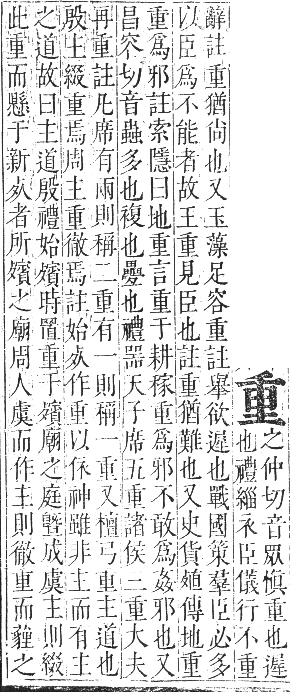 重
之仲切音眾慎重也遲
也禮緇衣臣儀行不重
辭註重猶尚也又玉藻足容重註舉欲遲也戰國策羣臣必多
以臣爲不能者故王重見臣也註重猶難也又史貨殖傳地重
重爲邪註索隱曰地重言重于耕稼重爲邪不敢爲姦邪也又
昌容切音蟲多也複也疊也禮器天子席五重諸侯三重大夫
再重註凡席有兩則稱二重有一則稱一重又檀弓重主道也
殷主綴重焉周主重徹焉註始死作重以依神雖非主而有主
之道故曰主道殷禮始殯時置重于殯廟之庭暨成虞主則綴
此重而懸于新死者所殯之廟周人虞而作主則徹重而貍之